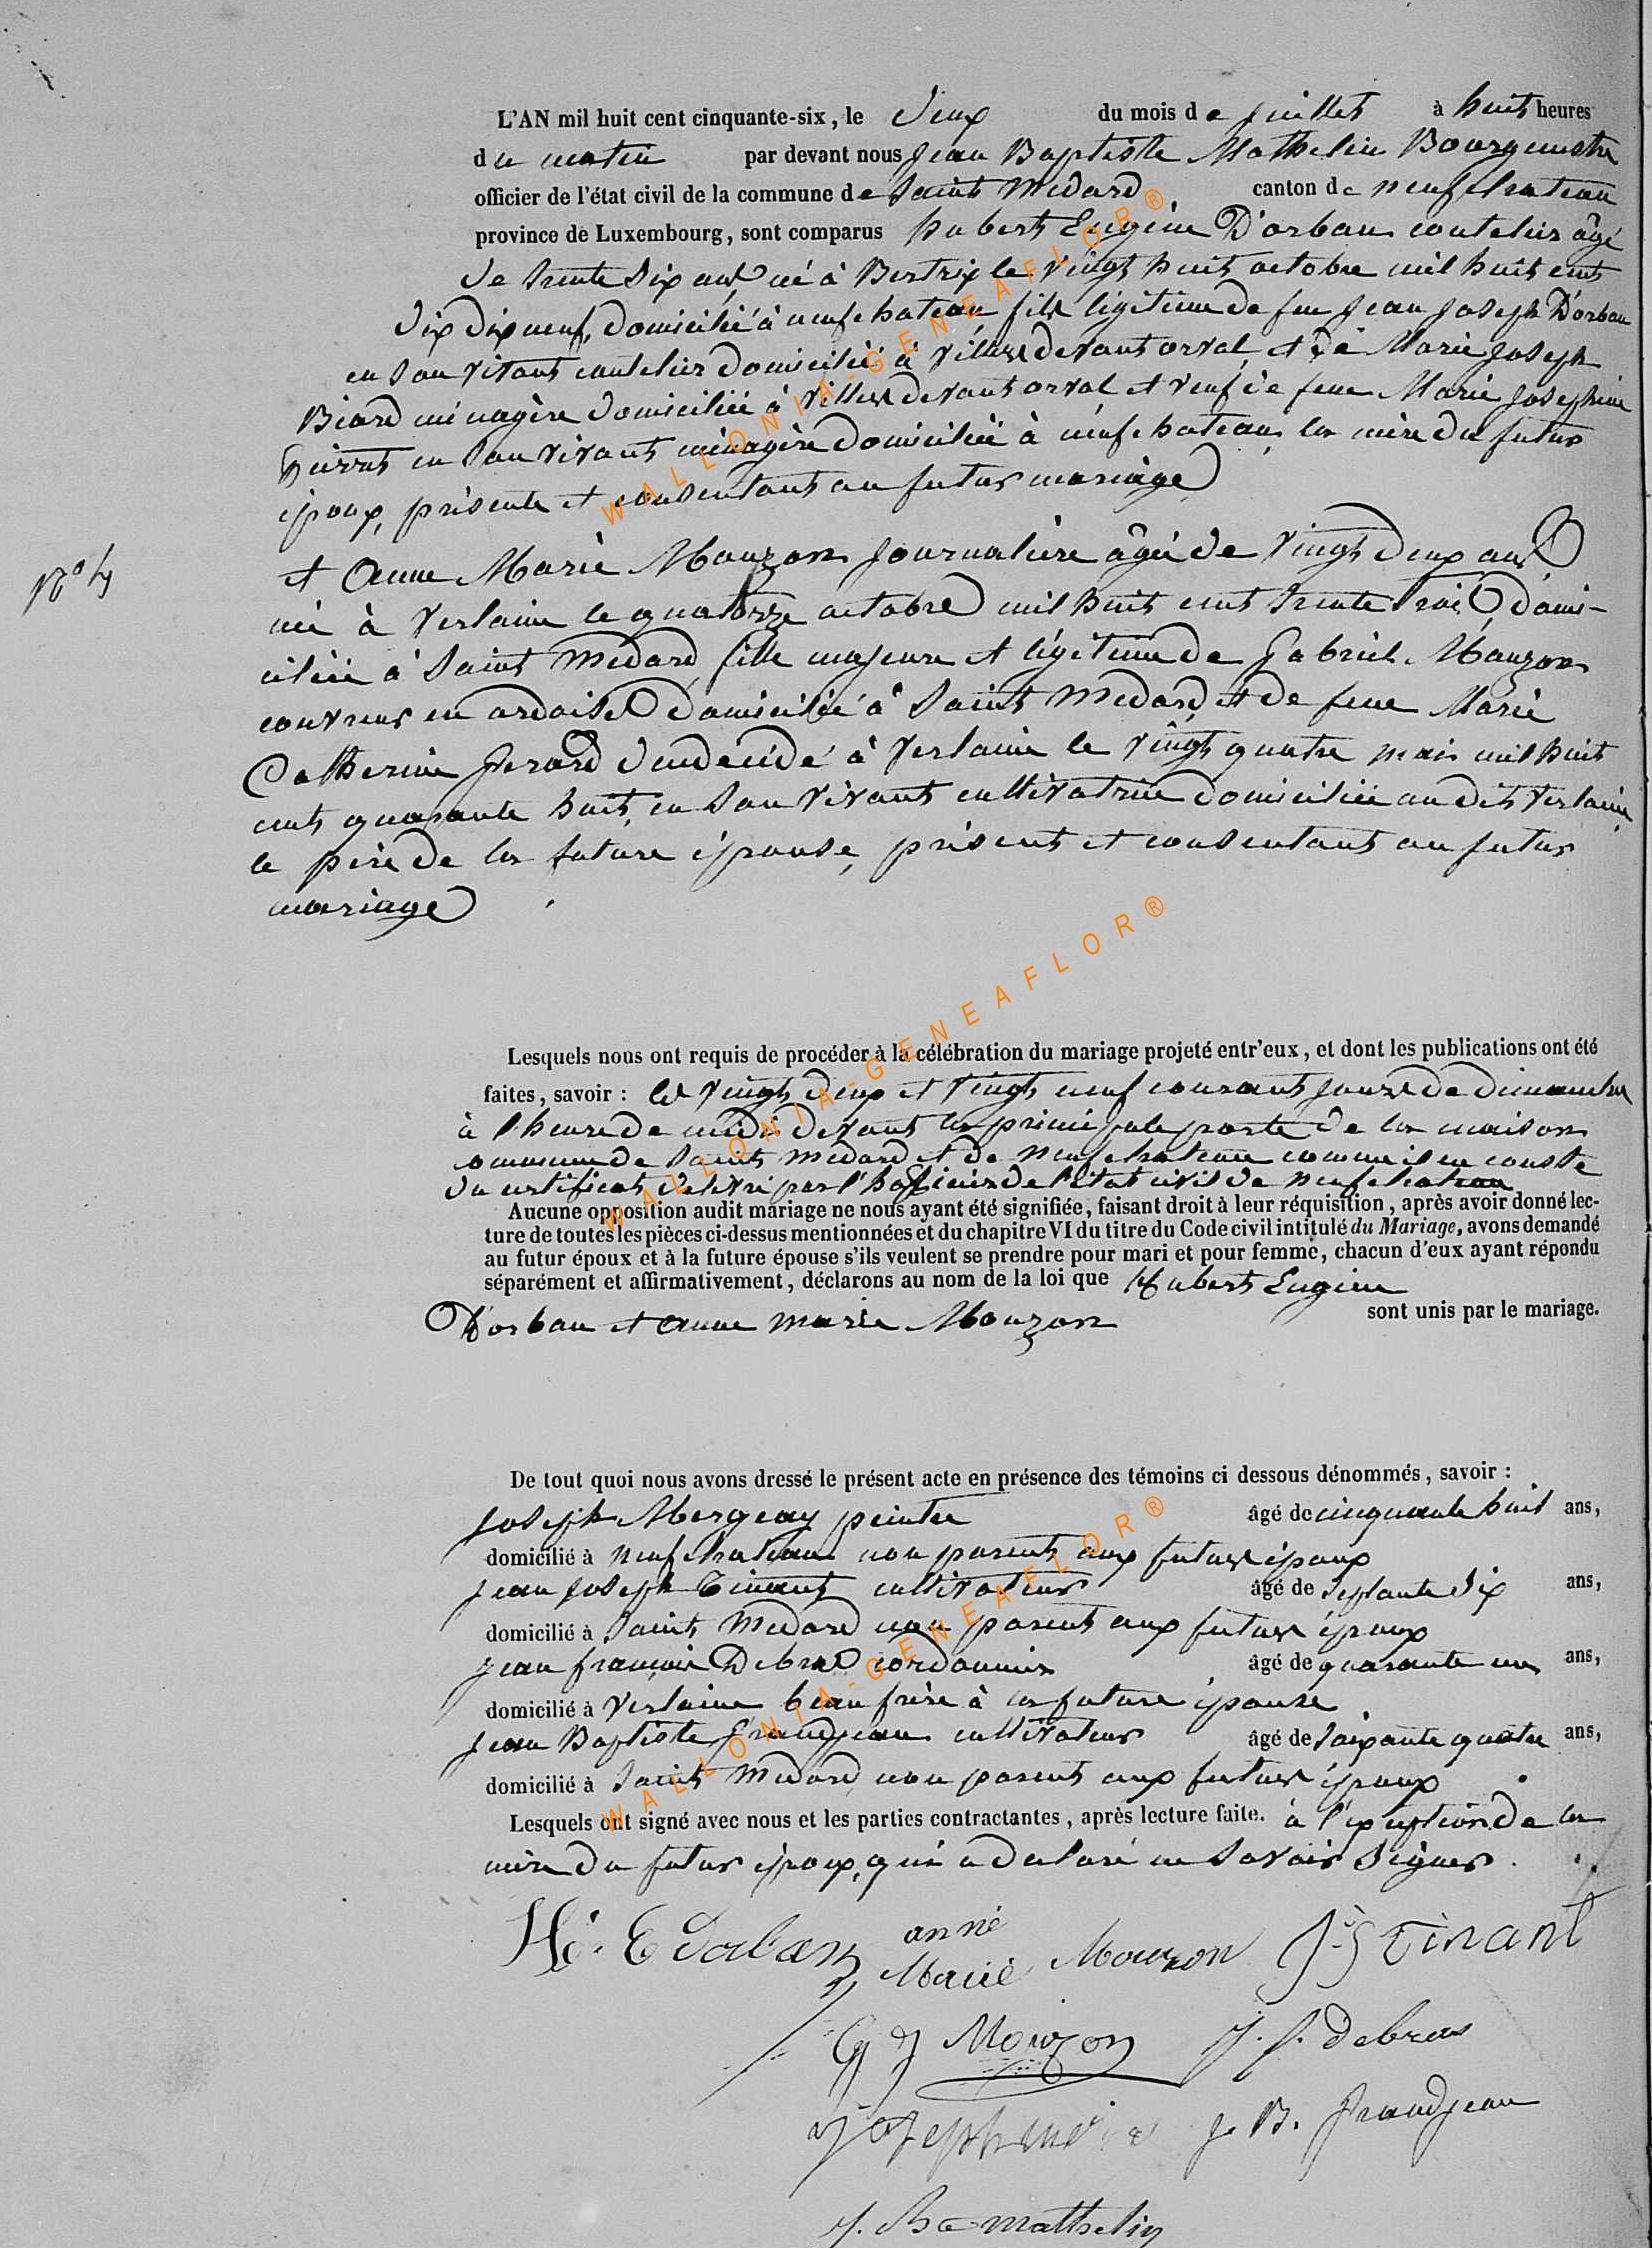 L'AN mil huit cent cinquante-six, le deux du mois de juillet à huit heures
du matin par devant nous Jean Baptiste Mathelin Bourgmestre
officier de l'état civil de la commune de Saint Medard canton de neufchateau
province de Luxembourg, sont comparus hubert Eugène D'orban coutelier âgé
de trente six ans né à Bertrix le vingt huit octobre mil huit cent
dix neuf, domicilié à neufchateau fils légitime de feu Jean Joseph D'orban
en son vivant coutelier domicilié à villers devant orval et de Marie Joseph
Biard ménagère domiciliée à villers devant orval et veuf de feue Marie Josephine
en son vivant ménagère domiciliée à neufchateau, la mère du futur
époux, présente et consentant au futur mariage
N° 4
et Anne Marie Mouzon Journalière âgée de vingt deux ans
née à Verlaine le quatorze octobre mil huit cent trente trois domi-
ciliée à Saint Medard fille majeure et légitime de Gabriel Mouzon
couvreur en ardoises domicilié à Saint Medard et de feue Marie
Catherine Gerard décédé à Verlaine le vingt quatre mars mil huit
cent quarante huit, en son vivant cultivatrice domiciliée au dit Verlaine,
le père de la future épouse, présent et consentant au futur
mariage
Lesquels nous ont requis de procéder à la célébration du mariage projeté entr'eux, et dont les publications ont été
faites, savoir : les vingt deux et vingt neuf courant jours de dimanche
à l'heure de midi devant la principale porte de la maison
commune de Saint Medard et de Neufchateau comme il en conste
du certificat délivré par l'hofficier de l'état civil de Neufchateau
Aucune opposition audit mariage ne nous ayant été signifiée, faisant droit à leur réquisition, après avoir donné lec-
ture de toutes les pièces ci-dessus mentionnées et du chapitre VI du titre du Code civil intitulé du Mariage, avons demandé
au futur époux et à la future épouse s'ils veulent se prendre pour mari et pour femme, chacun d'eux ayant répondu
séparément et affirmativement, déclarons au nom de la loi que Hubert Eugène
D'orban et anne marie Mouzon sont unis par le mariage.
De tout quoi nous avons dressé le présent acte en présence des témoins ci dessous dénommés, savoir :
Joseph Mergeay peintre âgé de cinquante huit ans,
domicilié à neufchateau non parent aux futurs époux
Jean Joseph Tinant cultivateur âgé de septante dix ans,
domicilié à Saint Medard non parent aux futurs époux
Jean françois Debras cordonnier âgé de quarante un ans,
domicilié à Verlaine beau frère à la future épouse
Jean Baptiste Grandjean cultivateur âgé de soixante quatre ans,
domicilié à Saint Medard non parent aux futurs époux
Lesquels ont signé avec nous et les parties contractantes, après lecture faite. à l'exception de la
mère du futur époux, qui a déclaré ne savoir signer.
H. E Dorban anne Marie Mouzon J J Tinant
G J Mouzon J. f. debras
J. B. Grandjean
J. Bte mathelin
WALLONIA-GENEAFLOR®
WALLONIA-GENEAFLOR®
WALLONIA-GENEAFLOR®